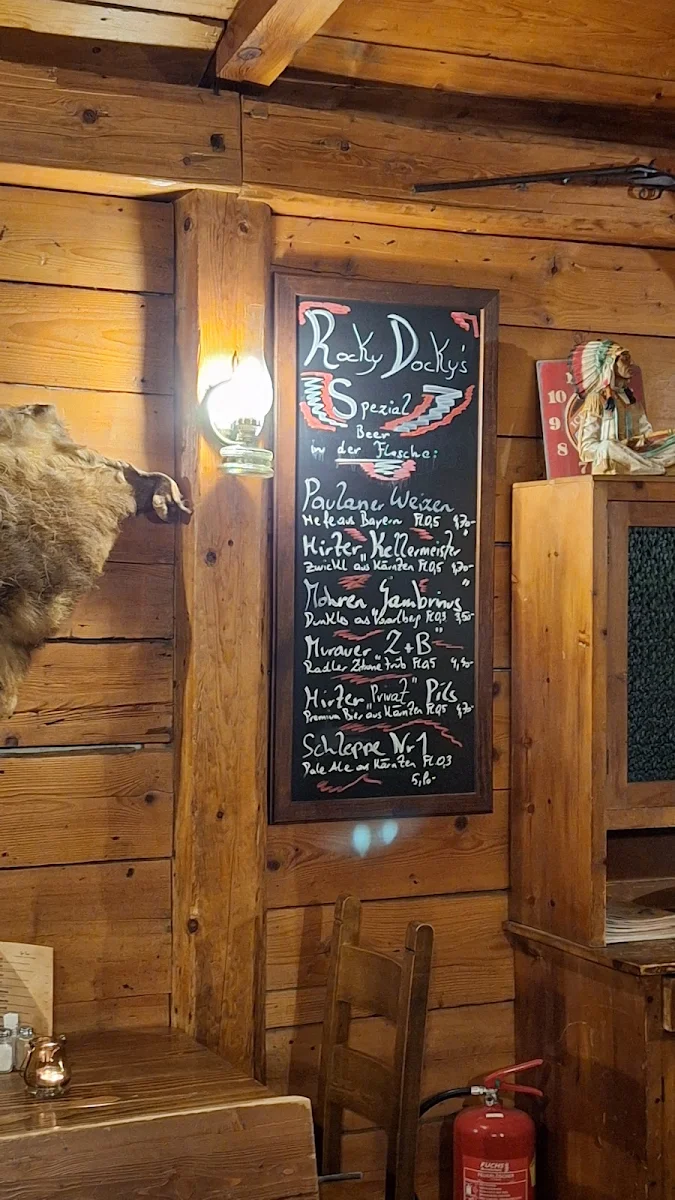 Rocky Docky's
Spezial
Beer
in der Flasche:
Paulaner Weizen
Hefe aus Bayern Fl.0,5 4,70-
Hirter "Kellermeister"
Zwickl aus Kärnten Fl.0,5 4,70-
Mohren "Gambrinus"
Dunkles aus Fl.0,3 3,50-
Murauer "Z+B"
Radler Zitrone trüb Fl.0,5
Hirter "Privat" Pils
Premium Bier aus Kärnten Fl.0,5 4,70-
Schleppe Nr 1
Pale Ale aus Kärnten Fl.0,3
5,10-
10
9
8
FUCHS